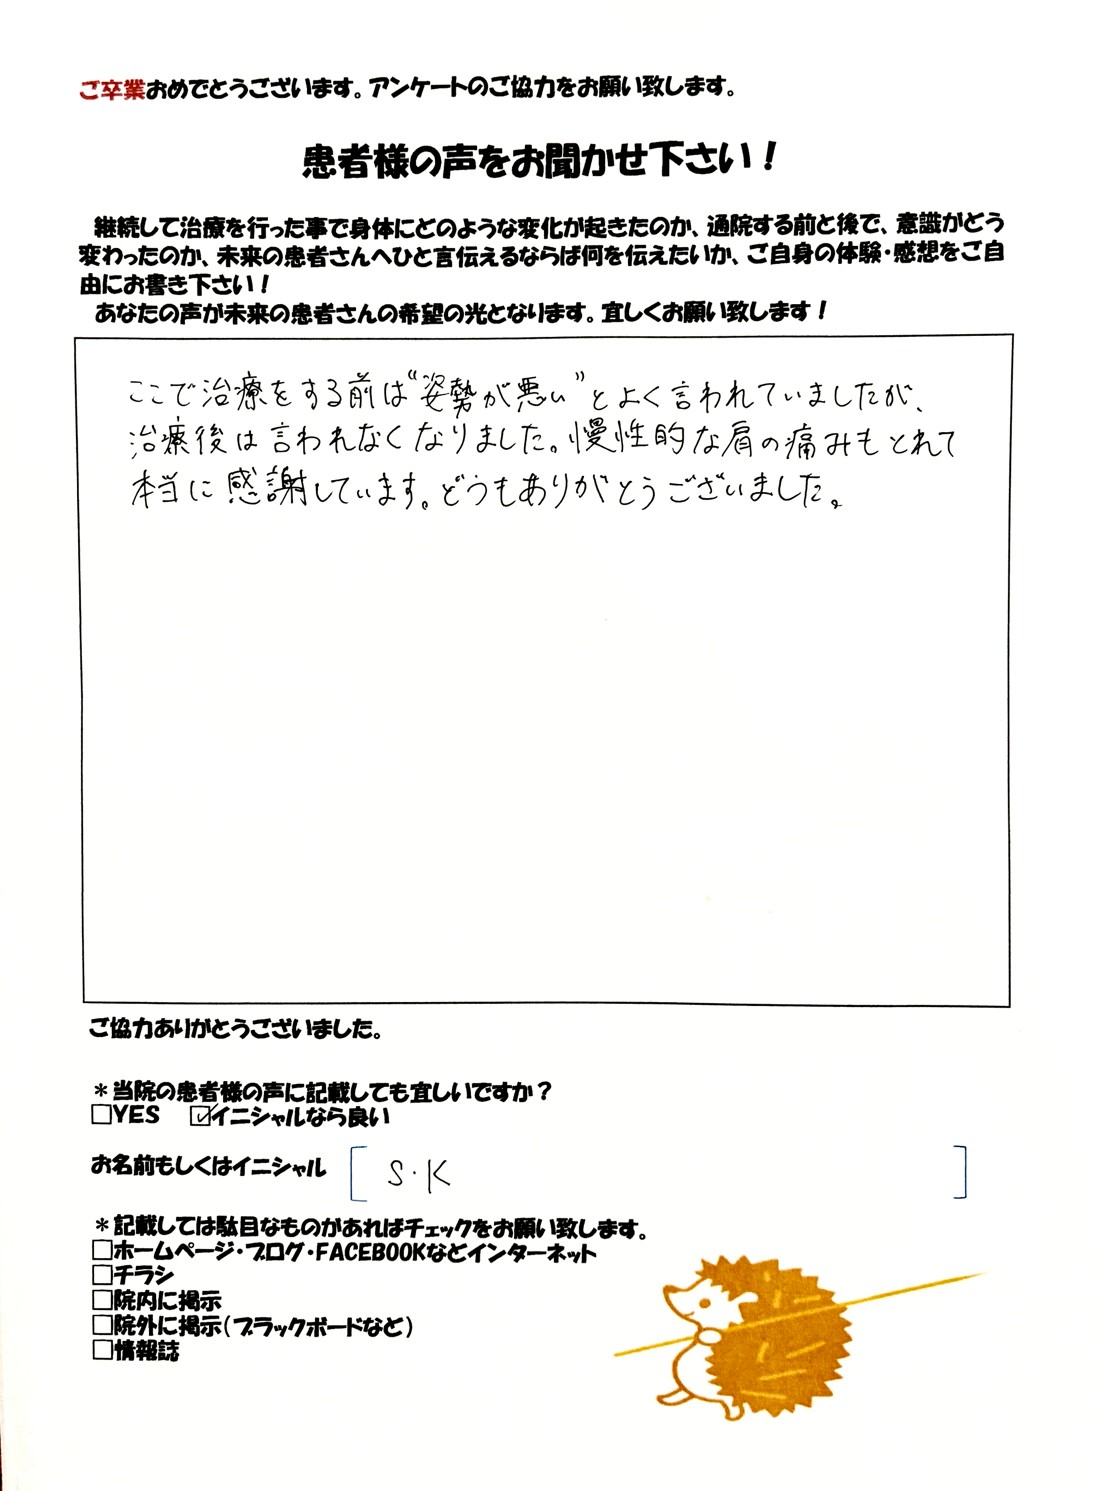 ご卒業おめでとうございます。アンケートのご協力をお願い致します。
患者様の声をお聞かせ下さい！
継続して治療を行った事で身体にどのような変化が起きたのか、通院する前と後で、意識がどう
変わったのか、未来の患者さんへひと言伝えるならば何を伝えたいか、ご自身の体験・感想をご自
由にお書き下さい！
あなたの声が未来の患者さんの希望の光となります。宜しくお願い致します！
ここで治療をする前は“姿勢が悪い”とよく言われていましたが、
治療後は言われなくなりました。慢性的な肩の痛みもとれて
本当に感謝しています。どうもありがとうございました。
ご協力ありがとうございました。
＊当院の患者様の声に記載しても宜しいですか？
□YES ☑イニシャルなら良い
お名前もしくはイニシャル [ S・K ]
＊記載しては駄目なものがあればチェックをお願い致します。
□ホームページ・ブログ・FACEBOOKなどインターネット
□チラシ
□院内に掲示
□院外に掲示（ブラックボードなど）
□情報誌